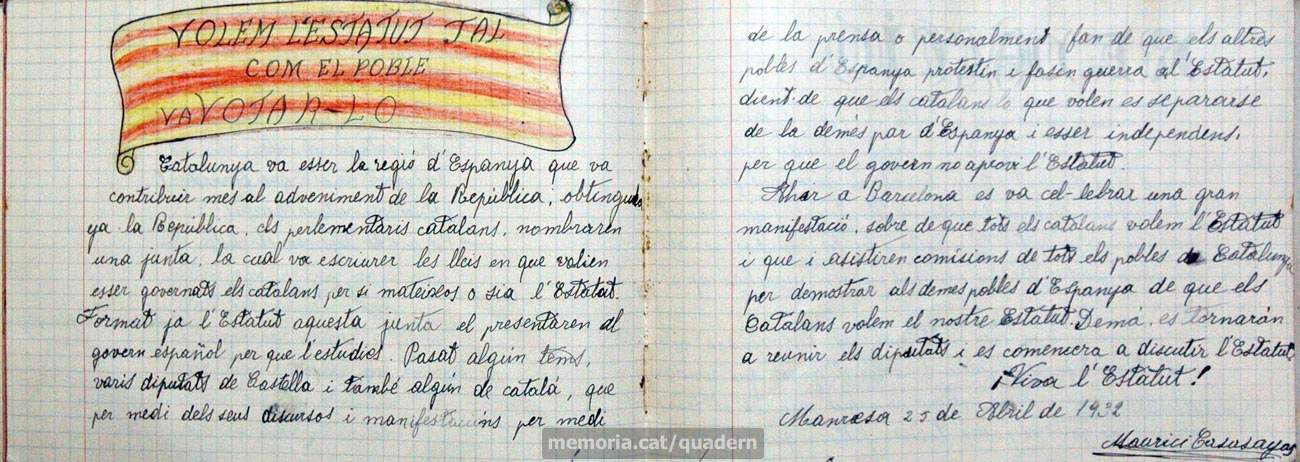 VOLEM L'ESTATUT TAL
COM EL POBLE
VA VOTAR-LO
Catalunya va esser la regió d'Espanya que va
contribuir mes al adveniment de la República, obtinguda
ya la República, els perlementaris catalans, nombraren
una junta, la cual va escriurer les lleis en que volien
esser governats els catalans per si mateixos o sia l'Estatut.
Format ja l'Estatut aquesta junta el presentaren al
govern español per que l'estudiés. Pasat algún tems,
varis diputats de Castella i també algún de catalá, que
per medi dels seus discursos i manifestacións per medi
de la prensa o personalment fan de que els altres
pobles d'Espanya protestin i fasin guerra al l'Estatut,
dient de que els catalans lo que volen es separarse
de la demés par d'Espanya i esser independens,
per que el govern no aprovi l'Estatut.
Ahir a Barcelona es va cel-lebrar una gran
manifestació, sobre de que tots els catalans volem l'Estatut
i que i asistiren comisions de tots els pobles de Catalunya
per demostrar als demes pobles d'Espanya de que els
Catalans volem el nostre Estatut. Demá, es tornarán
a reunir els diputats i es comencera a discutir l'Estatut.
¡Viva l'Estatut!
Manresa 25 de Abril de 1932
Maurici Casasayas
memoria.cat/quadern